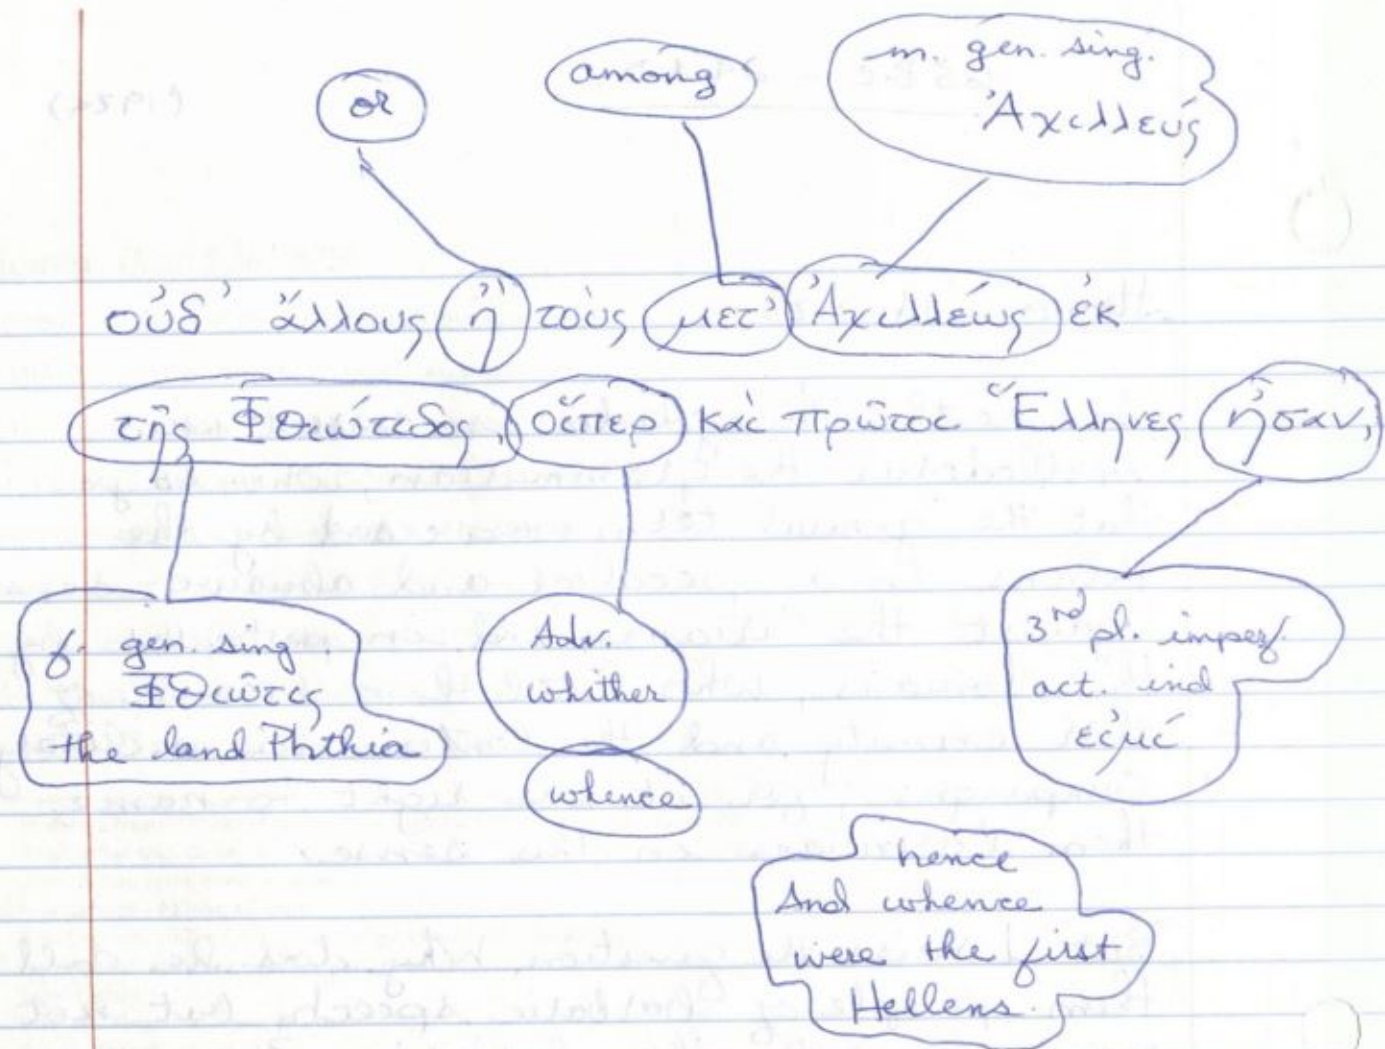 or
among
m. gen. sing.
Ἀχιλλεύς
οὐδ' ἄλλους ἢ τοὺς μετ' Ἀχιλλέως ἐκ
τῆς Φθιώτιδος, οἵπερ καὶ πρῶτοι Ἕλληνες ἦσαν,
f. gen. sing
Φθιῶτις
the land Phthia
Adv.
whither
whence
3rd pl. imperf.
act. ind
εἰμί
hence
And whence
were the first
Hellens.